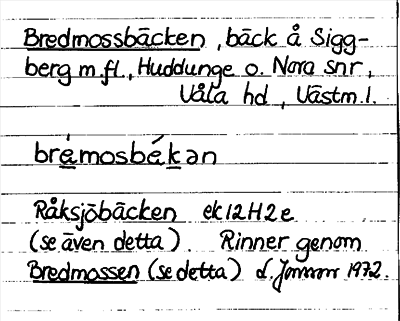 Bredmossbäcken, bäck å Sigg-
berg m.fl., Huddunge o. Nora snr,
Våla hd, Västm.l.
brémosbékən
Råksjöbäcken ek 12H2e
(se även detta). Rinner genom
Bredmossen (se detta) 1972.